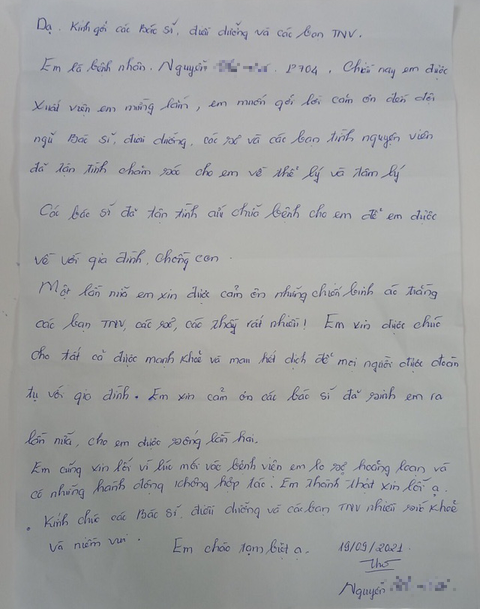 Dạ. Kính gởi các Bác sĩ, điều dưỡng và các bạn TNV.
Em là bệnh nhân. Nguyễn P704, Chiều nay em được
xuất viện em mừng lắm, em muốn gởi lời cảm ơn đến đội
ngũ Bác sĩ, điều dưỡng, các sơ và các bạn tình nguyện viên
đã tận tình chăm sóc cho em về thể lý và tâm lý
Các bác sĩ đã tận tình cứu chữa bệnh cho em để em được
về với gia đình, chồng con.
Một lần nữa em xin được cảm ơn những chiến binh áo trắng
các bạn TNV, các sơ, các thầy rất nhiều! Em xin được chúc
cho tất cả được mạnh khoẻ và mau hết dịch để mọi người được đoàn
tụ với gia đình. Em xin cảm ơn các bác sĩ đã sinh em ra
lần nữa, cho em được sống lần hai.
Em cũng xin lỗi vì lúc mới vào bệnh viện em lo sợ, hoảng loạn và
có những hành động không hợp tác. Em thành thật xin lỗi ạ.
Kính chúc các Bác sĩ, điều dưỡng và các bạn TNV nhiều sức khoẻ
và niềm vui.
Em chào tạm biệt ạ.
19/09/2021
Nguyễn